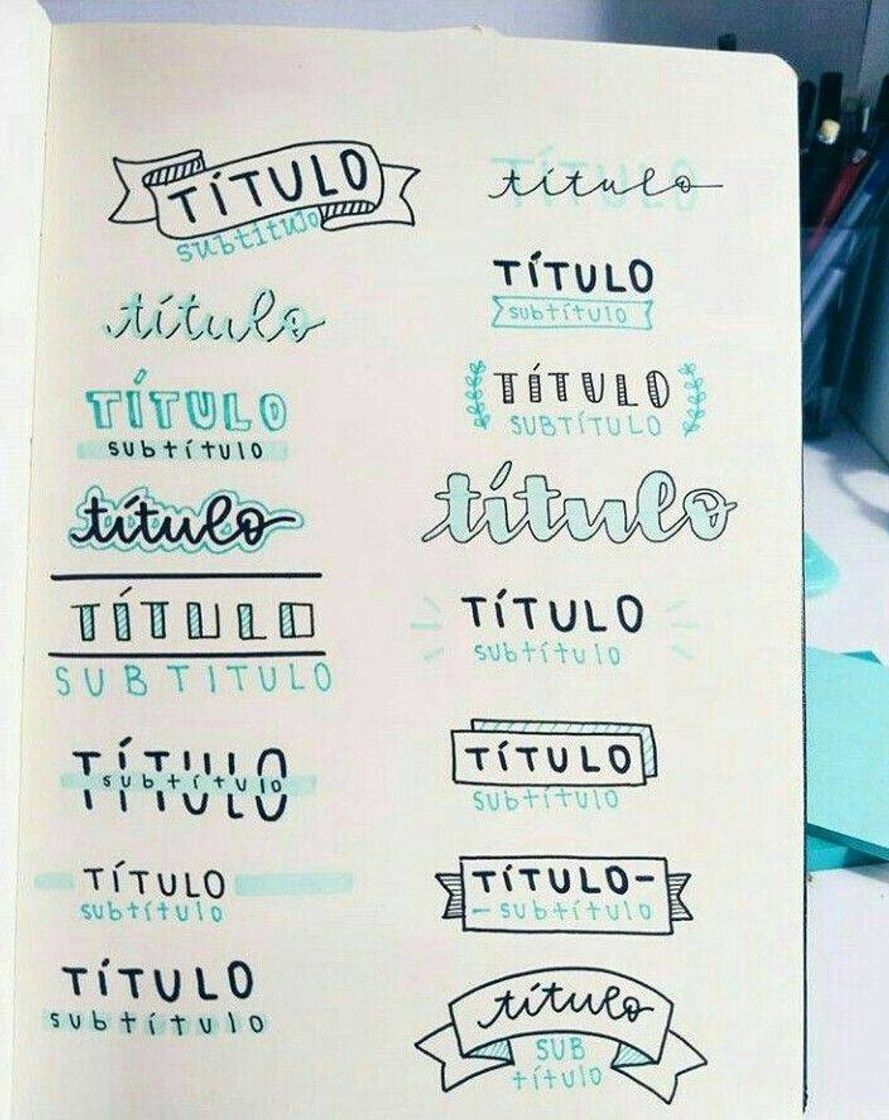 TÍTULO
subtítulo
título
TÍTULO
subtítulo
título
TÍTULO
SUBTITULO
TÍTULO
subtítulo
TÍTULO
subtítulo
TÍTULO
subtítulo
TÍTULO
título
TÍTULO
subtítulo
TÍTULO
SUBTÍTULO
título
TÍTULO
subtítulo
TÍTULO
subtítulo
TÍTULO-
-subtítulo
título
SUB
título